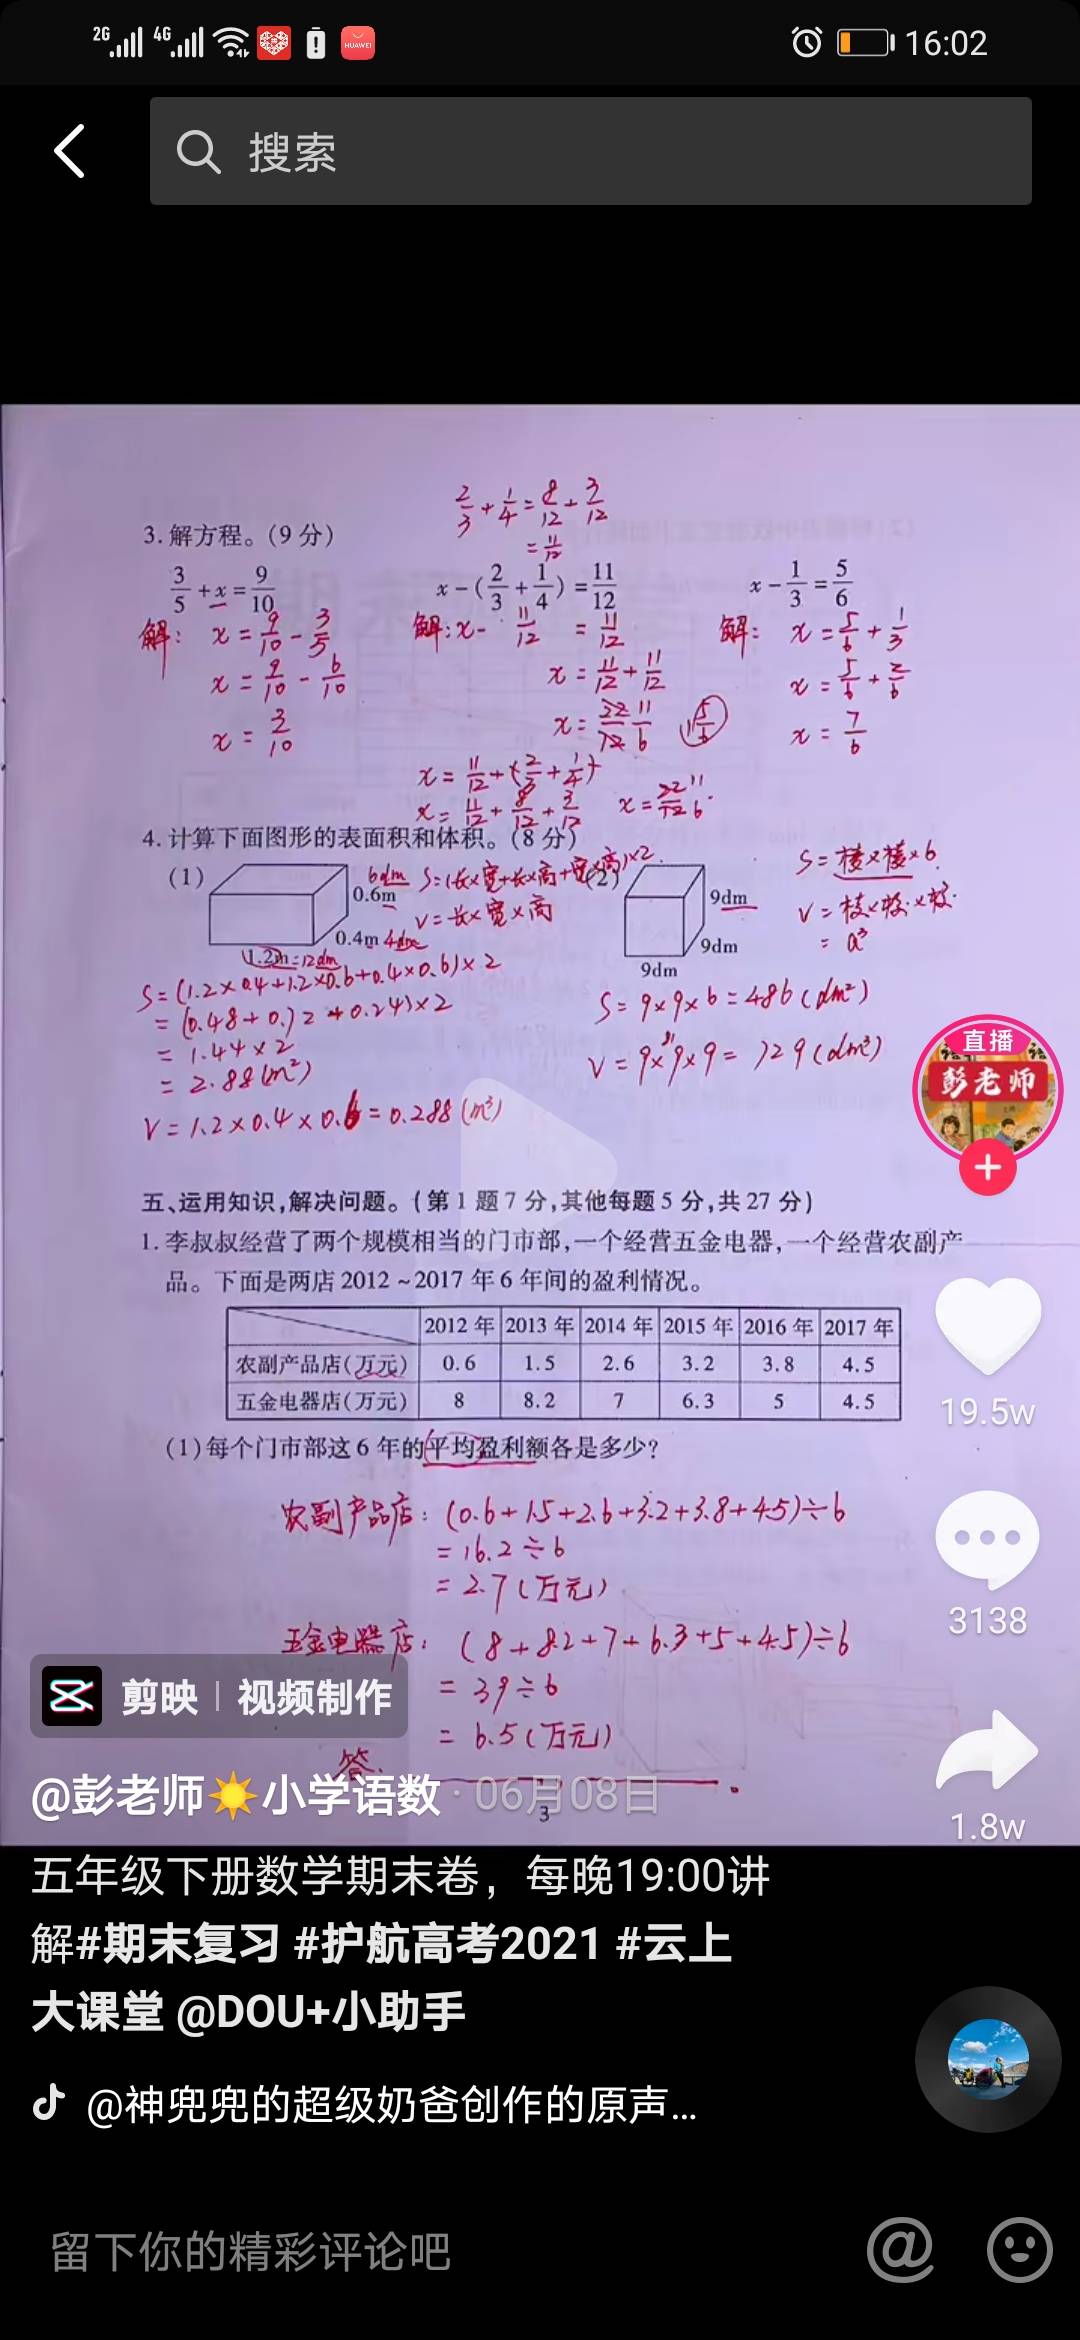 2G 4G HUAWEI 16:02
搜索
2/3 + 1/4 = 8/12 + 3/12
= 11/12
3.解方程。(9分)
3/5 + x = 9/10
x - (2/3 + 1/4) = 11/12
x - 1/3 = 5/6
解: x = 9/10 - 3/5
解: x - 11/12 = 11/12
解: x = 5/6 + 1/3
x = 9/10 - 6/10
x = 11/12 + 11/12
x = 5/6 + 2/6
x = 3/10
x = 22/12 11/6 1 5/6
x = 7/6
x = 11/12 + (2/3 + 1/4)
x = 11/12 + 8/12 + 3/12
x = 22/12 11/6
4.计算下面图形的表面积和体积。(8分)
(1)
6dm
0.6m
0.4m 4dm
1.2m=12dm
S=(长×宽+长×高+宽×高)×2
V=长×宽×高
(2)
9dm
9dm
9dm
S=棱×棱×6
V=棱×棱×棱
= a³
S=(1.2×0.4+1.2×0.6+0.4×0.6)×2
=(0.48+0.72+0.24)×2
= 1.44×2
= 2.88(m²)
V=1.2×0.4×0.6=0.288(m³)
S=9×9×6=486(dm²)
81
V=9×9×9=729(dm³)
五、运用知识,解决问题。(第1题7分,其他每题5分,共27分)
1.李叔叔经营了两个规模相当的门市部,一个经营五金电器,一个经营农副产
品。下面是两店2012~2017年6年间的盈利情况。
2012年 2013年 2014年 2015年 2016年 2017年
农副产品店(万元) 0.6 1.5 2.6 3.2 3.8 4.5
五金电器店(万元) 8 8.2 7 6.3 5 4.5
(1)每个门市部这6年的平均盈利额各是多少?
农副产品店: (0.6+1.5+2.6+3.2+3.8+4.5)÷6
=16.2÷6
=2.7(万元)
五金电器店: (8+8.2+7+6.3+5+4.5)÷6
= 39÷6
= 6.5(万元)
答:
3
直播
彭老师
19.5w
3138
1.8w
剪映 | 视频制作
@彭老师☀️小学语数 · 06月08日
五年级下册数学期末卷，每晚19:00讲
解#期末复习 #护航高考2021 #云上
大课堂 @DOU+小助手
@神兜兜的超级奶爸创作的原声...
留下你的精彩评论吧
@